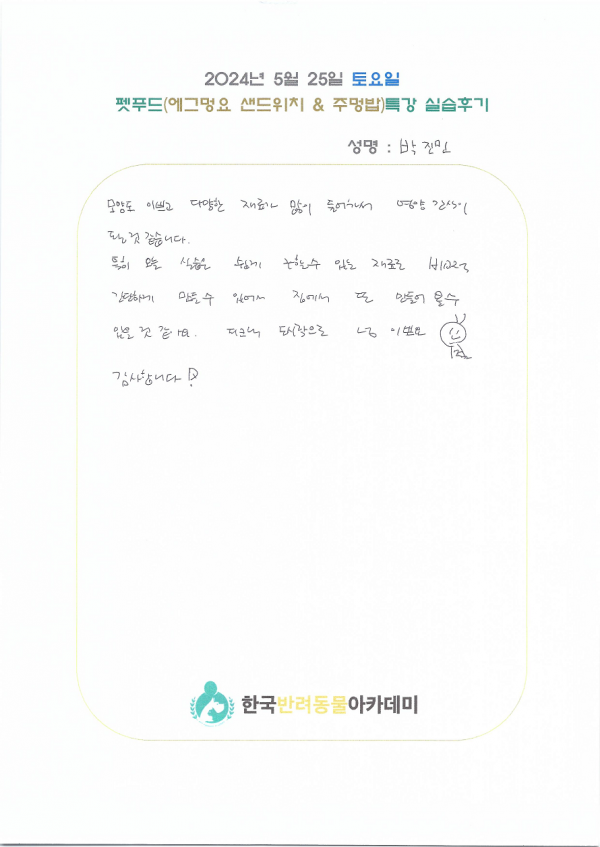 2024년 5월 25일 토요일
펫푸드(에그멍요 샌드위치 & 주멍밥)특강 실습후기
성명 : 박진민
모양도 이쁘고 다양한 재료가 많이 들어가서 영양 간식이
되는 것 같습니다.
특히 오늘 실습은 쉽게 구할수 있는 재료로 비교적
간단하게 만들수 있어서 집에서 또 만들어 볼수
있을 것 같아요. 피크닉 도시락으로 넘 이뻐요
감사합니다
한국반려동물아카데미